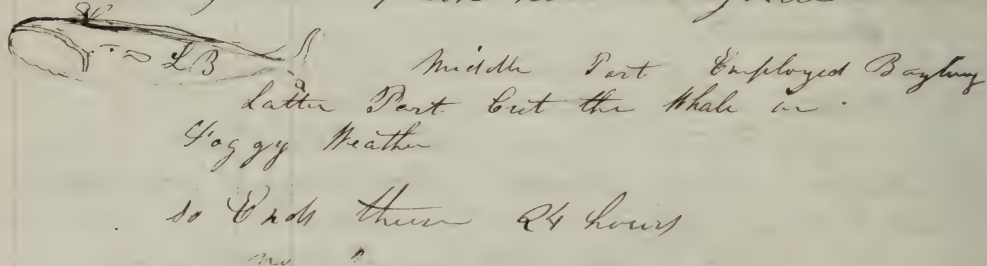 L B
Middle Part Employed Boyling
Latter Part Cut the Whale in
Foggy Weather
So Ends these 24 hours